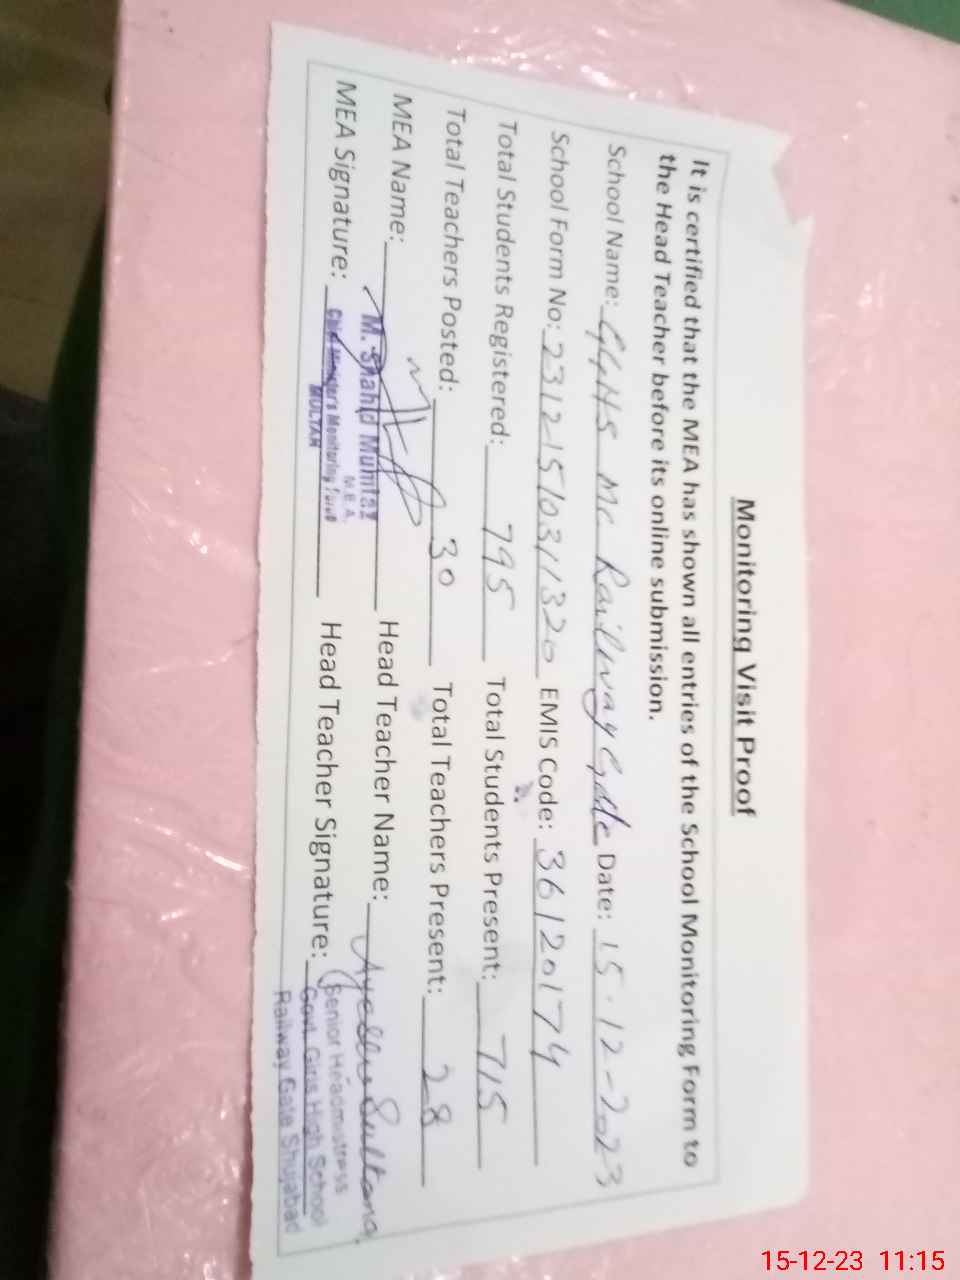 Monitoring Visit Proof
It is certified that the MEA has shown all entries of the School Monitoring Form to
the Head Teacher before its online submission.
School Name: GGHS MC Railway Gate Date: 15-12-2023
School Form No: 23121510311320 EMIS Code: 36120174
Total Students Registered: 795 Total Students Present: 715
Total Teachers Posted: 30 Total Teachers Present: 28
MEA Name: M. Shahid Mumtaz Head Teacher Name: Sultana
M.E.A.
MEA Signature: Chief Minister's Monitoring Force Head Teacher Signature: Senior Headmistress
MULTAN
Govt. Girls High School
Railway Gate Shujabad
15-12-23 11:15